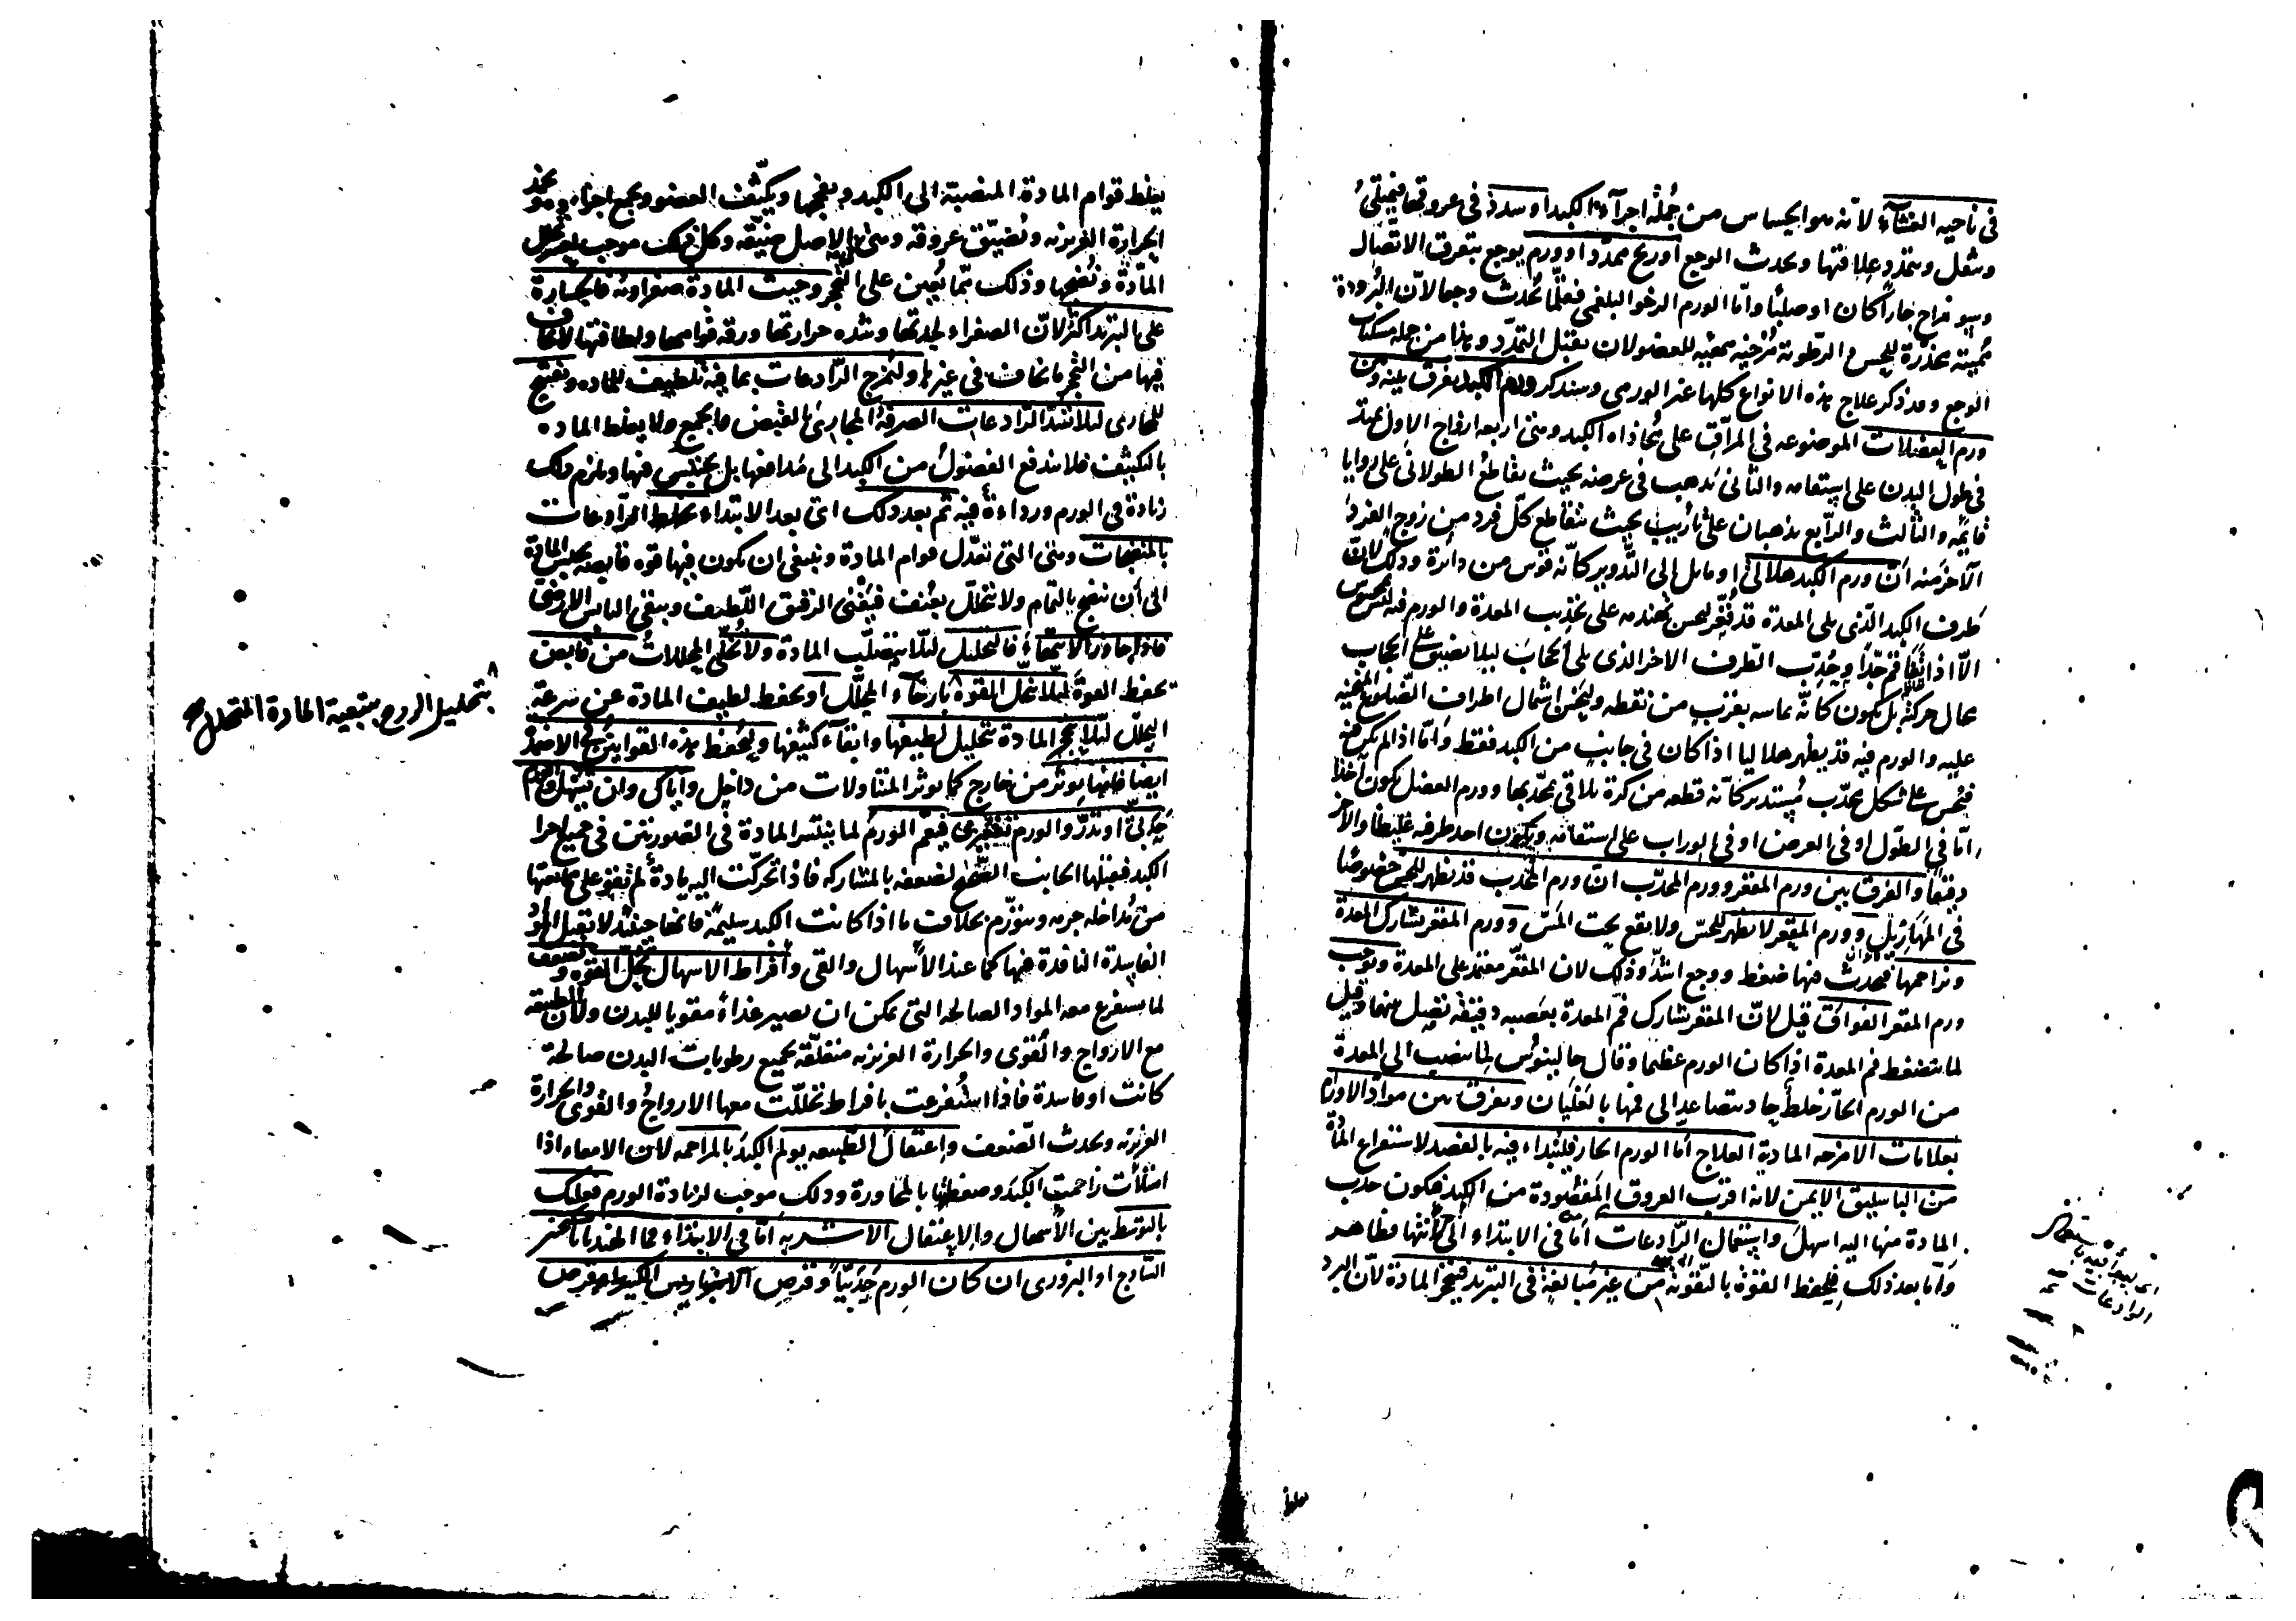 فى ناحيه الغشآء لانه هو الحساس من جملة اجزآء الكبد او سدد فى عروقها فيمتلئ
وتثقل وتتمدد علاقتها ويحدث الوجع او ريح ممدد او ورم يوجع بتفرق الاتصال
وسوء مزاج حارا كان او صلبا واما الورم الرخو البلغمى فقلما يحدث وجعا لان البرودة
مميتة مخدرة للحس والرطوبة مرخيه للعضو لان يقبل التمدد وهذا من جمله مسكنات
الوجع وقد ذكر علاج هذه الانواع كلها غير الورمى وسنذكر ورم الكبد يفرق بينه وبين
ورم العضلات الموضوعه فى المراق على محاذاه الكبد وهى اربعه ازواج الاول يمتد
فى طول البدن على استقامه والثانى يذهب فى عرضه بحيث يقاطع الطولانى على زوايا
قايمة والثالث والرابع يذهبان على تأريب بحيث يتقاطع كل فرد من زوج الفرد
الآخر منه ان ورم الكبد هلالى او مايل الى التدوير كانه قوس من دائرة وذلك لان
طرف الكبد الذى يلى المعدة قد قعر ليحسن تهندمه على تحدب المعدة والورم فيه ليس بمحسوس
الا اذا تفاقم جدا وحدب الطرف الاخر الذى يلى الحجاب ليلا يضيق على الحجاب
مجال حركته بل يكون كانه يماسه بقرب من نقطه وليحسن اشتمال اطراف الضلوع المنحنيه
عليه والورم فيه قد يظهر هلاليا اذا كان فى جانب من الكبد فقط واما اذا لم يكن فيه
فيحس على شكل محدب مستدير كانه قطعه من كرة يلاقى محدبها وورم العضل يكون آخذا
اما فى الطول او فى العرض او فى الوراب على استقامه ويكون احد طرفيه غليظا والآخر
دقيقا والفرق بين ورم المقعر وورم المحدب ان ورم المحدب قد يظهر للحس خصوصا
فى المهازيل وورم المقعر لا يظهر للحس ولا يقع تحت المس وورم المقعر يشارك المعدة
ويزاحمها فيحدث فيها ضغط ووجع اشد وذلك لان المقعر معتمد على المعدة ويوجب
ورم المقعر الفواق قيل لان المقعر يشارك فم المعدة بعصبه دقيقه تصل بينهما وقيل
لما ينضغط فم المعدة اذا كان الورم عظيما وقال جالينوس لما ينصب الى المعدة
من الورم الحار خلط حاد يتصاعد الى فمها بالغليان ويفرق بين مواد الاورام
بعلامات الامزجه المادية العلاج اما الورم الحار فليبداء فيه بالفصد لاستفراغ المادة
من الباسليق الايمن لانه اقرب العروق المفصودة من الكبد فيكون جذب
المادة منها اليه اسهل واستعمال الرادعات اما فى الابتداء فظاهر
واما بعد ذلك فليحفظ القوة بالتقوية من غير مبالغة فى التبريد فيحجر المادة لان البرد
يغلظ
يغلظ قوام المادة المنصبة الى الكبد ويفججها ويكثف العضو ويجمع اجزاءه ويخمد
الحرارة الغريزيه ويضيق عروقه وهى فى الاصل ضيقه وكل ذلك موجب
المادة ونضجها وذلك مما يعين على التحجر وحيث المادة صفراويه فالجسارة
على التبريد اكثر لان الصفراء لحدتها وشده حرارتها ورقه قوامها ولطافتها لا يخاف
فيها من التحجر ما يخاف فى غيرها ولتمزج الرادعات بما فيه تلطيف للماده وتفتيح
للمجارى ليلا تسد الرادعات الصرفة المجارى بالقبض والجمع ولا يغلظ الماده
بالتكثيف فلا يندفع الفضول من الكبد الى مدافعها بل يحتبس فيها ويلزم ذلك
زيادة فى الورم ورداءة فيه ثم بعد ذلك اى بعد الابتداء يخلط الرادعات
بالمنضجات وهى التى تعدل قوام المادة وينبغى ان يكون فيها قوه قابضه يحبس المادة
الى ان تنضج بالتمام ولا تتحلل بعنف فيفنى الرقيق اللطيف ويبقى اليابس الارضى
فاذا جاوز الانتهاء فالتحليل ليلا يتصلب المادة ولا تخلى المحللات من قابض
يحفظ القوة ليلا تنحل القوة بارخاء المحلل او يحفظ لطيف المادة عن سرعة
التحلل ليلا يتحجر المادة بتحليل لطيفها وابقآء كثيفها وليحفظ هذه القوانين فى الاضمدة
ايضا فانها يوثر من خارج كما يوثر المتناولات من داخل واياك وان تسهل والورم
حدبى او تدر والورم تقعيرى فيعم الورم لما ينتشر المادة فى الصورتين فى جميع اجزا
الكبد فيقبلها الجانب الصحيح لضعفه بالمشاركه فاذا تحركت اليه مادة لم تقو على ممانعتها
من مداخله جرمه ويتورم بخلاف ما اذا كانت الكبد سليمة فانها حينئذ لا تقبل المواد
الفاسدة النافذة فيها كما عند الاسهال والقى وافراط الاسهال يحل القوه ويضعف
لما يستفرغ معه المواد الصالحه التى يمكن ان تصير غذاء مقويا للبدن ولان الطبيعه
مع الارواح والقوى والحرارة الغريزيه متعلقه بجميع رطوبات البدن صالحة
كانت او فاسدة فاذا استفرغت بافراط تحللت معها الارواح والقوى والحرارة
الغريزيه ويحدث الضعف واعتقال الطبيعه يولم الكبد بالمزاحمه لان الامعاء اذا
امتلأت زاحمت الكبد وضغطتها بالمجاورة وذلك موجب لزيادة الورم فعليك
بالتوسط بين الاسهال والاعتقال الاشربه اما فى الابتداء فماء الهندبا بالسكنجبين
الساذج او البزورى ان كان الورم حدبيا وقرص الامبرباريس الكبير او قرص
بتحليل الروح بتبعية المادة المتحللة